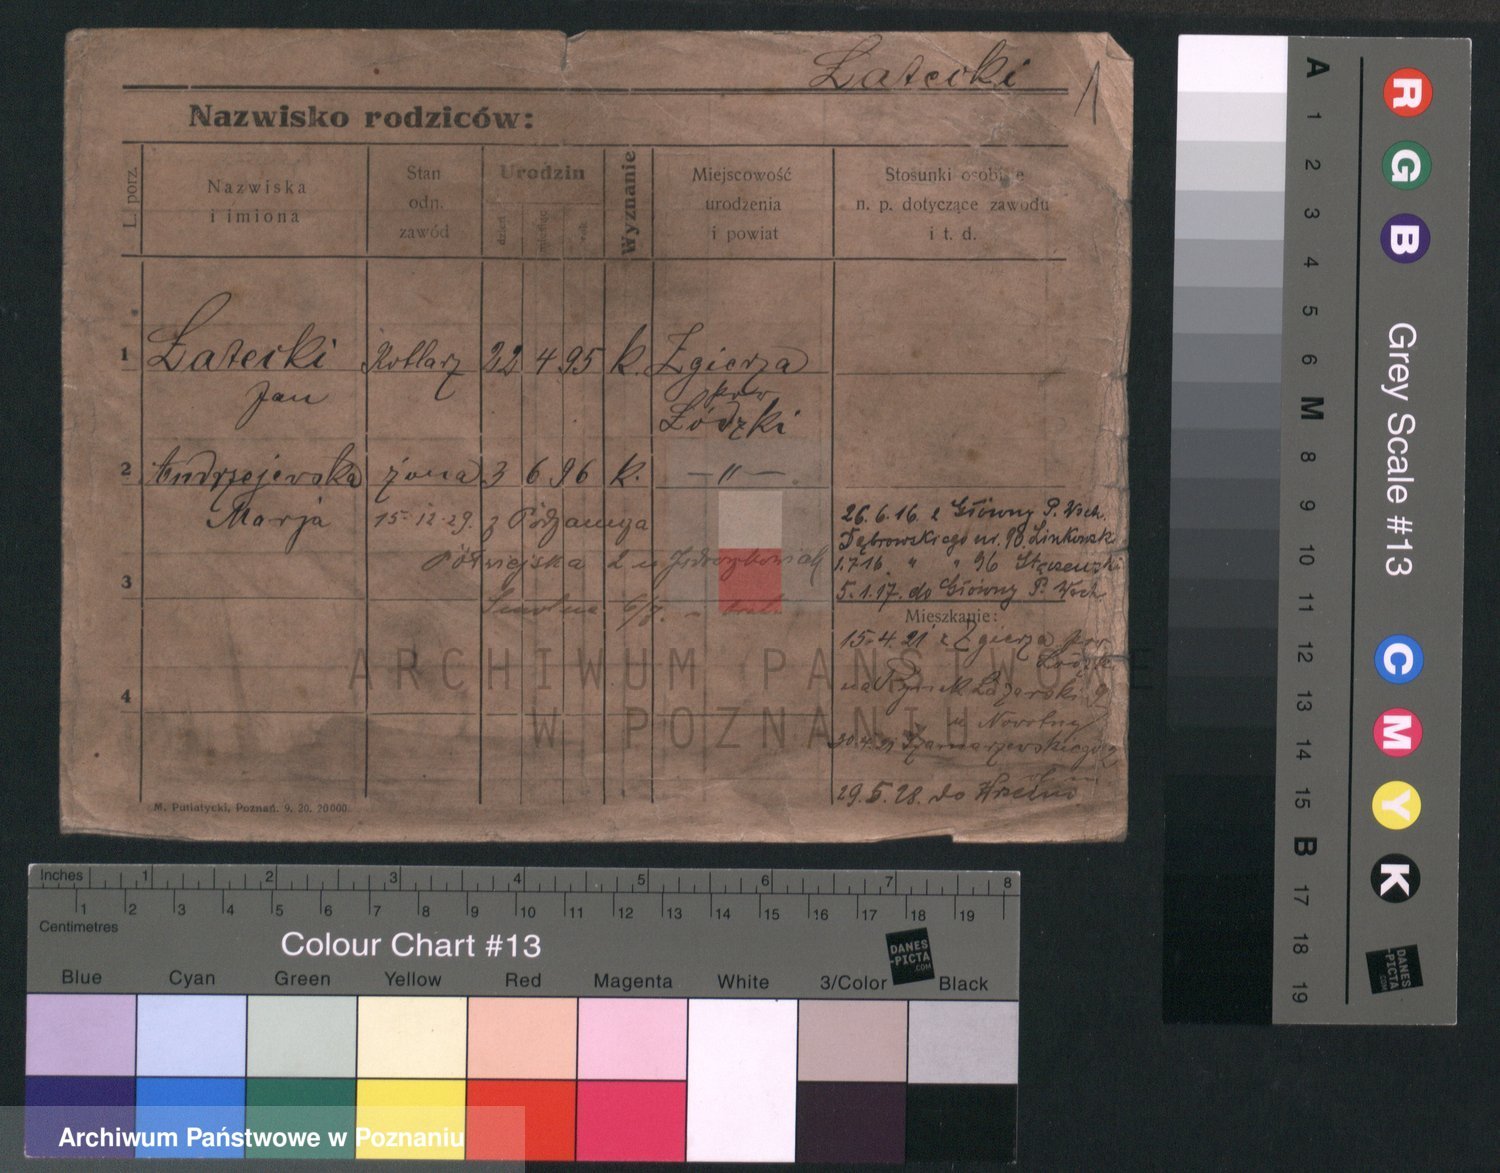 Łatecki
1
Nazwisko rodziców:
L. porz.
Nazwiska
i imiona
Stan
odn.
zawód
Urodzin
dzień
miesiąc
rok
Wyznanie
Miejscowość
urodzenia
i powiat
Stosunki osobiste
n. p. dotyczące zawodu
i t. d.
1 Łatecki Kotlarz 22 4 95 k. Zgierza
Jan pow
Łódzki
2 Andrzejewska żona 3 6 96 k. — " —
Marja 15-12-29. z
26.6.16 z Główny P. Woch.
Dąbrowskiego nr. 98.
1.7.16 " " 96
5.1.17. do Główny P. Woch.
Półwiejska 2 u
3
Mieszkanie:
15.4.21 z Zgierza pow
Łódzki
na Rynek Łazarski 9
u Novotny
4
29.5.28. do
M. Putiatycki, Poznań. 9. 20. 20000
ARCHIWUM PAŃSTWOWE
W POZNANIU
Inches 1 2 3 4 5 6 7 8
1 2 3 4 5 6 7 8 9 10 11 12 13 14 15 16 17 18 19
Centimetres
Colour Chart #13
DANES
-PICTA
.COM
Blue Cyan Green Yellow Red Magenta White 3/Color Black
Archiwum Państwowe w Poznaniu
A 1 2 3 4 5 6 M 8 9 10 11 12 13 14 15 B 17 18 19
R G B
Grey Scale #13
C M Y K
DANES
-PICTA
.COM